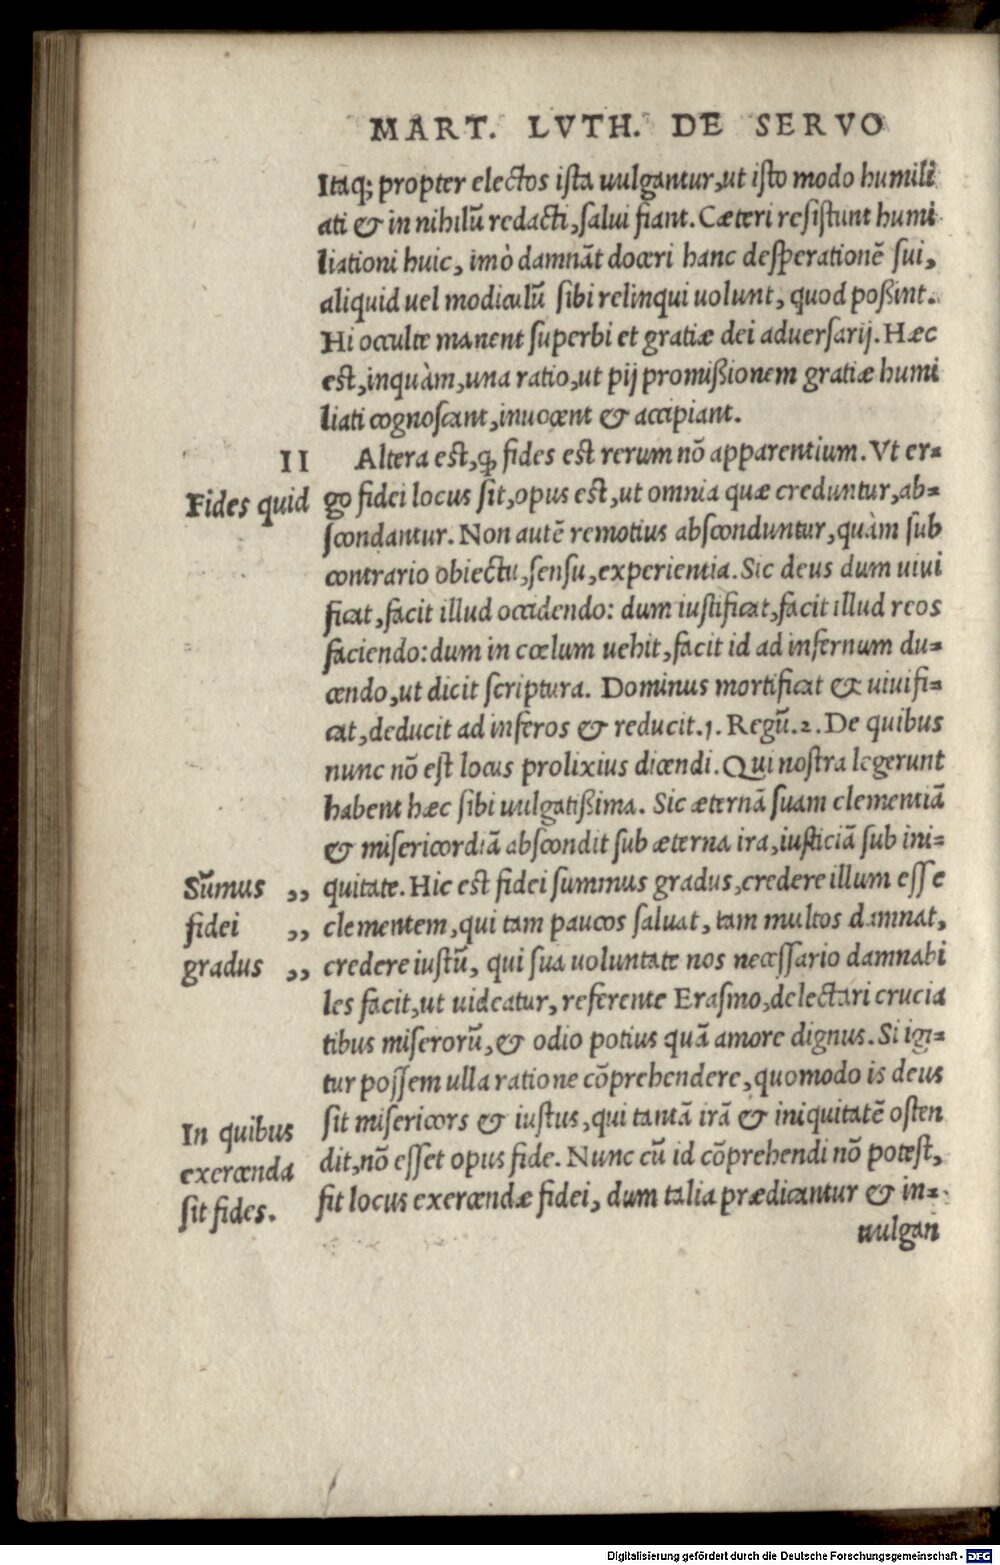 MART. LVTH. DE SERVO
Itaq; propter electos ista uulgantur, ut isto modo humili
ati & in nihilũ redacti, salui fiant. Cæteri resistunt humi
liationi huic, imò damnãt doceri hanc desperationẽ sui,
aliquid uel modiculũ sibi relinqui uolunt, quod poßint.
Hi occulte manent superbi et gratiæ dei aduersarij. Hæc
est, inquàm, una ratio, ut pij promißionem gratiæ humi
liati cognoscant, inuocent & accipiant.
II Altera est, q; fides est rerum nõ apparentium. Vt er=
Fides quid go fidei locus sit, opus est, ut omnia quæ creduntur, ab=
scondantur. Non autẽ remotius absconduntur, quàm sub
contrario obiectu, sensu, experientia. Sic deus dum uiui
ficat, facit illud occidendo: dum iustificat, facit illud reos
faciendo: dum in cœlum uehit, facit id ad infernum du=
cendo, ut dicit scriptura. Dominus mortificat & uiuifi=
cat, deducit ad inferos & reducit. 1. Regũ. 2. De quibus
nunc nõ est locus prolixius dicendi. Qui nostra legerunt
habent hæc sibi uulgatißima. Sic æternã suam clementiã
& misericordiã abscondit sub æterna ira, iusticiã sub ini=
Sũmus ,, quitate. Hic est fidei summus gradus, credere illum esse
fidei ,, clementem, qui tam paucos saluat, tam multos damnat,
gradus ,, credere iustũ, qui sua uoluntate nos necessario damnabi
les facit, ut uideatur, referente Erasmo, delectari crucia
tibus miserorũ, & odio potius quã amore dignus. Si igi=
tur possem ulla ratione cõprehendere, quomodo is deus
In quibus sit misericors & iustus, qui tantã irã & iniquitatẽ osten
exercenda dit, nõ esset opus fide. Nunc cũ id cõprehendi nõ potest,
sit fides. fit locus exercendæ fidei, dum talia prædicantur & in=
uulgan
Digitalisierung gefördert durch die Deutsche Forschungsgemeinschaft - DFG